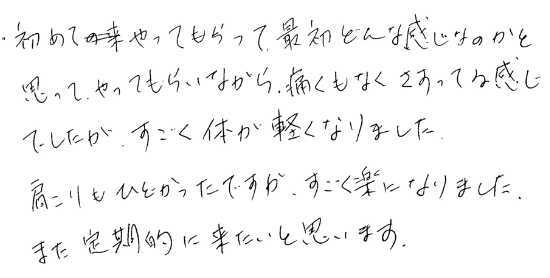 ・初めて来やってもらって、最初どんな感じなのかと
思って、やってもらいながら、痛くもなくさわってる感じ
でしたが、すごく体が軽くなりました。
肩こりもひどかったですが、すごく楽になりました。
また定期的に来たいと思います。